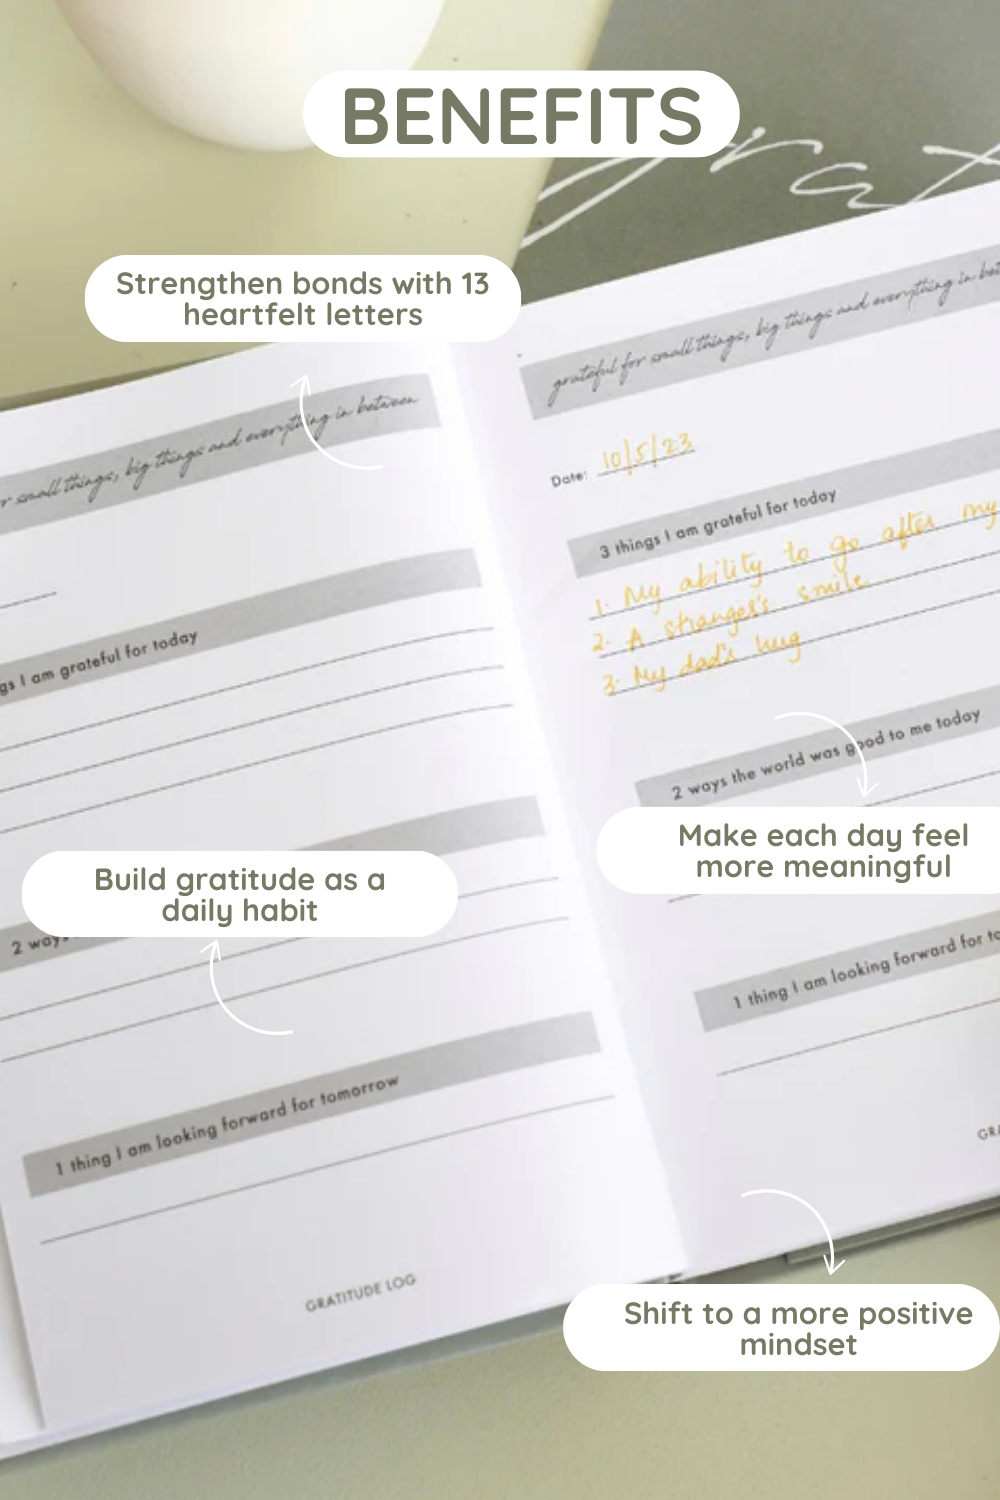 BENEFITS
grat
Strengthen bonds with 13
heartfelt letters
small things, big things and everything in between
I am grateful for today
Build gratitude as a
daily habit
2
1 thing I am looking forward for tomorrow
GRATITUDE LOG
grateful for small things, big things and everything in
Date: 10/5/23
3 things I am grateful for today
1. My ability to go after my
2. A stranger's smile
3. My dad's hug
2 ways the world was good to me today
Make each day feel
more meaningful
1 thing I am looking forward for
Shift to a more positive
mindset